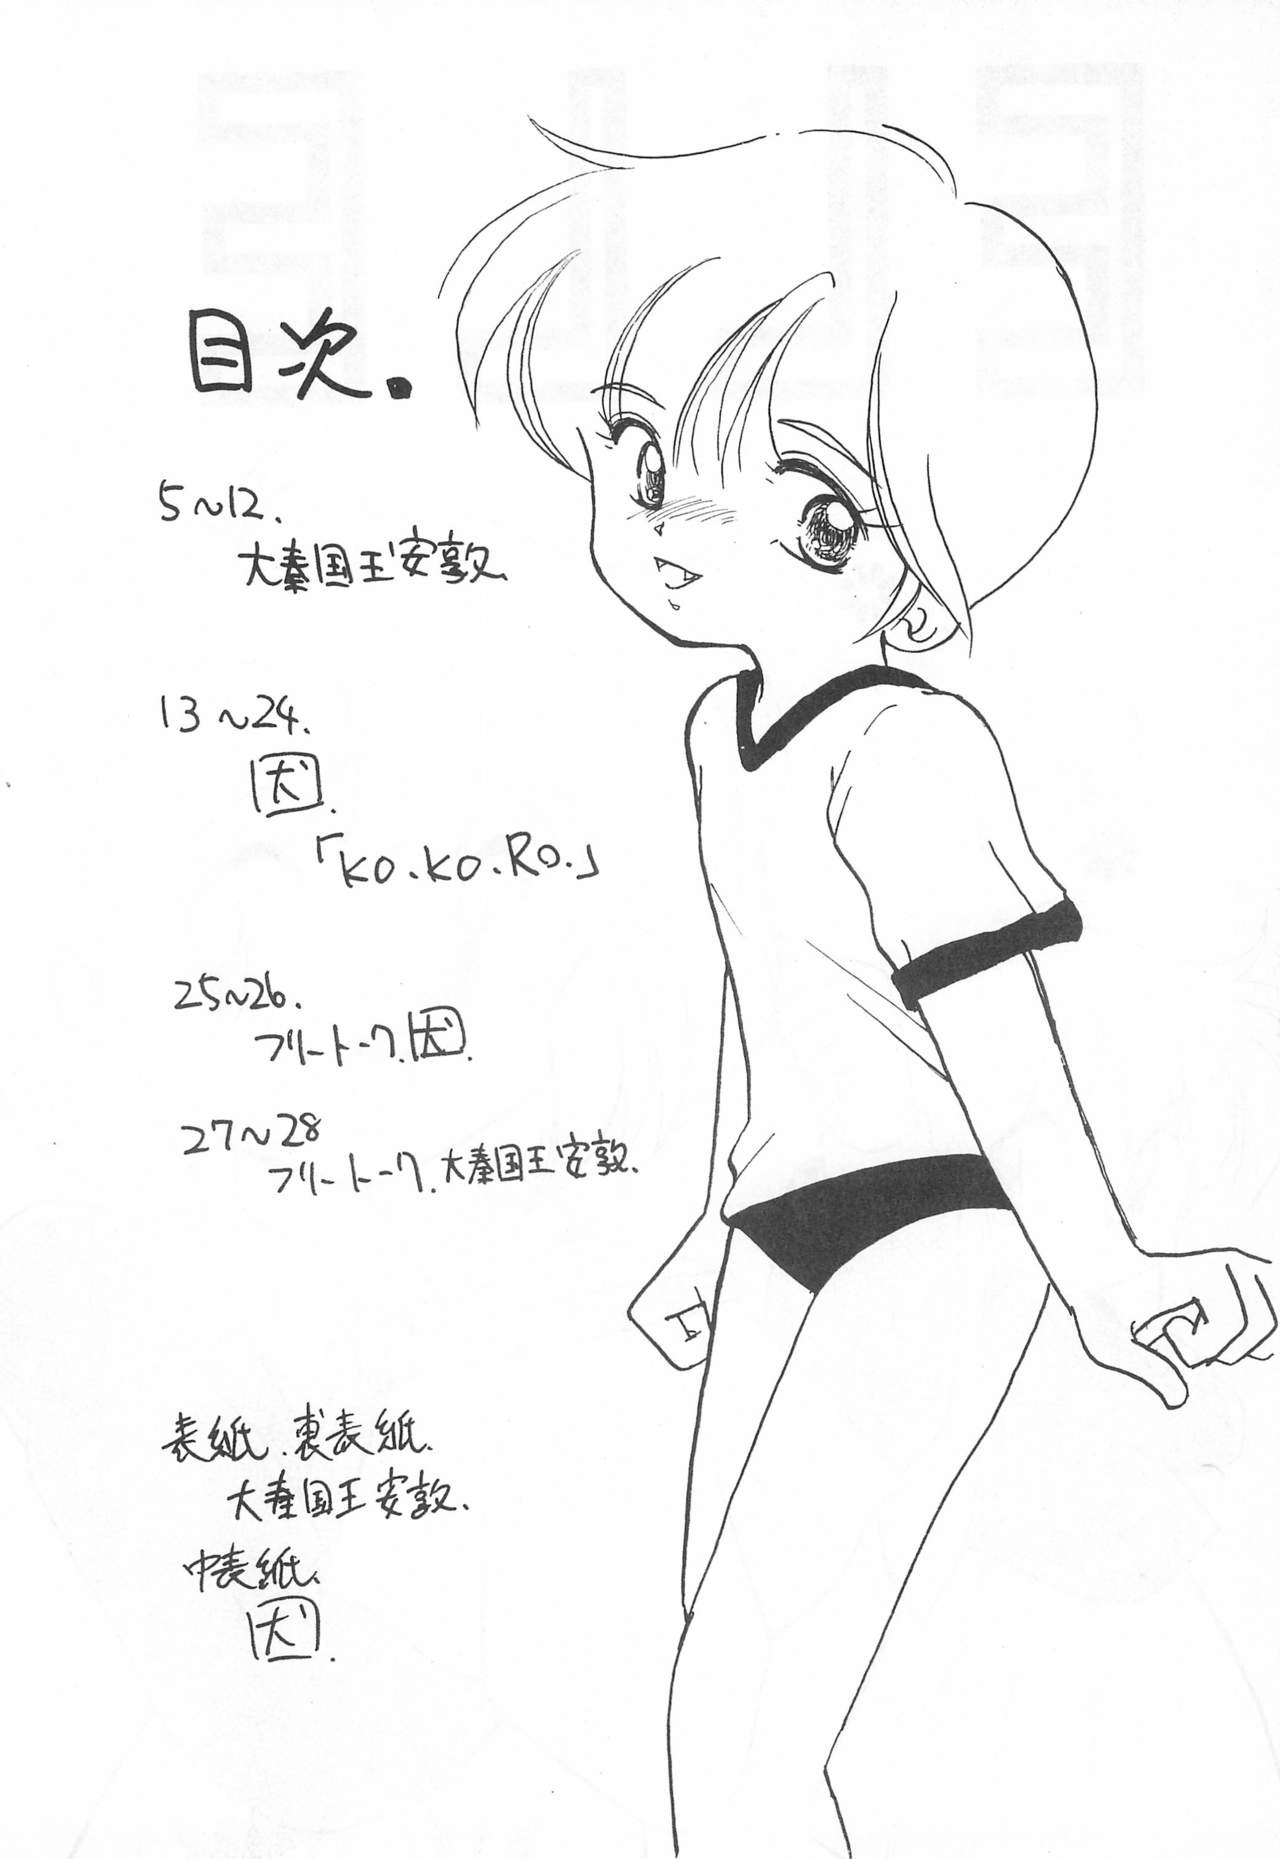 目次.
5～12.
大秦国王安敦.
13～24.
犬.
「KO.KO.RO.」
25～26.
フリートーク.犬.
27～28
フリートーク.大秦国王安敦.
表紙.裏表紙.
大秦国王安敦.
中表紙.
犬.